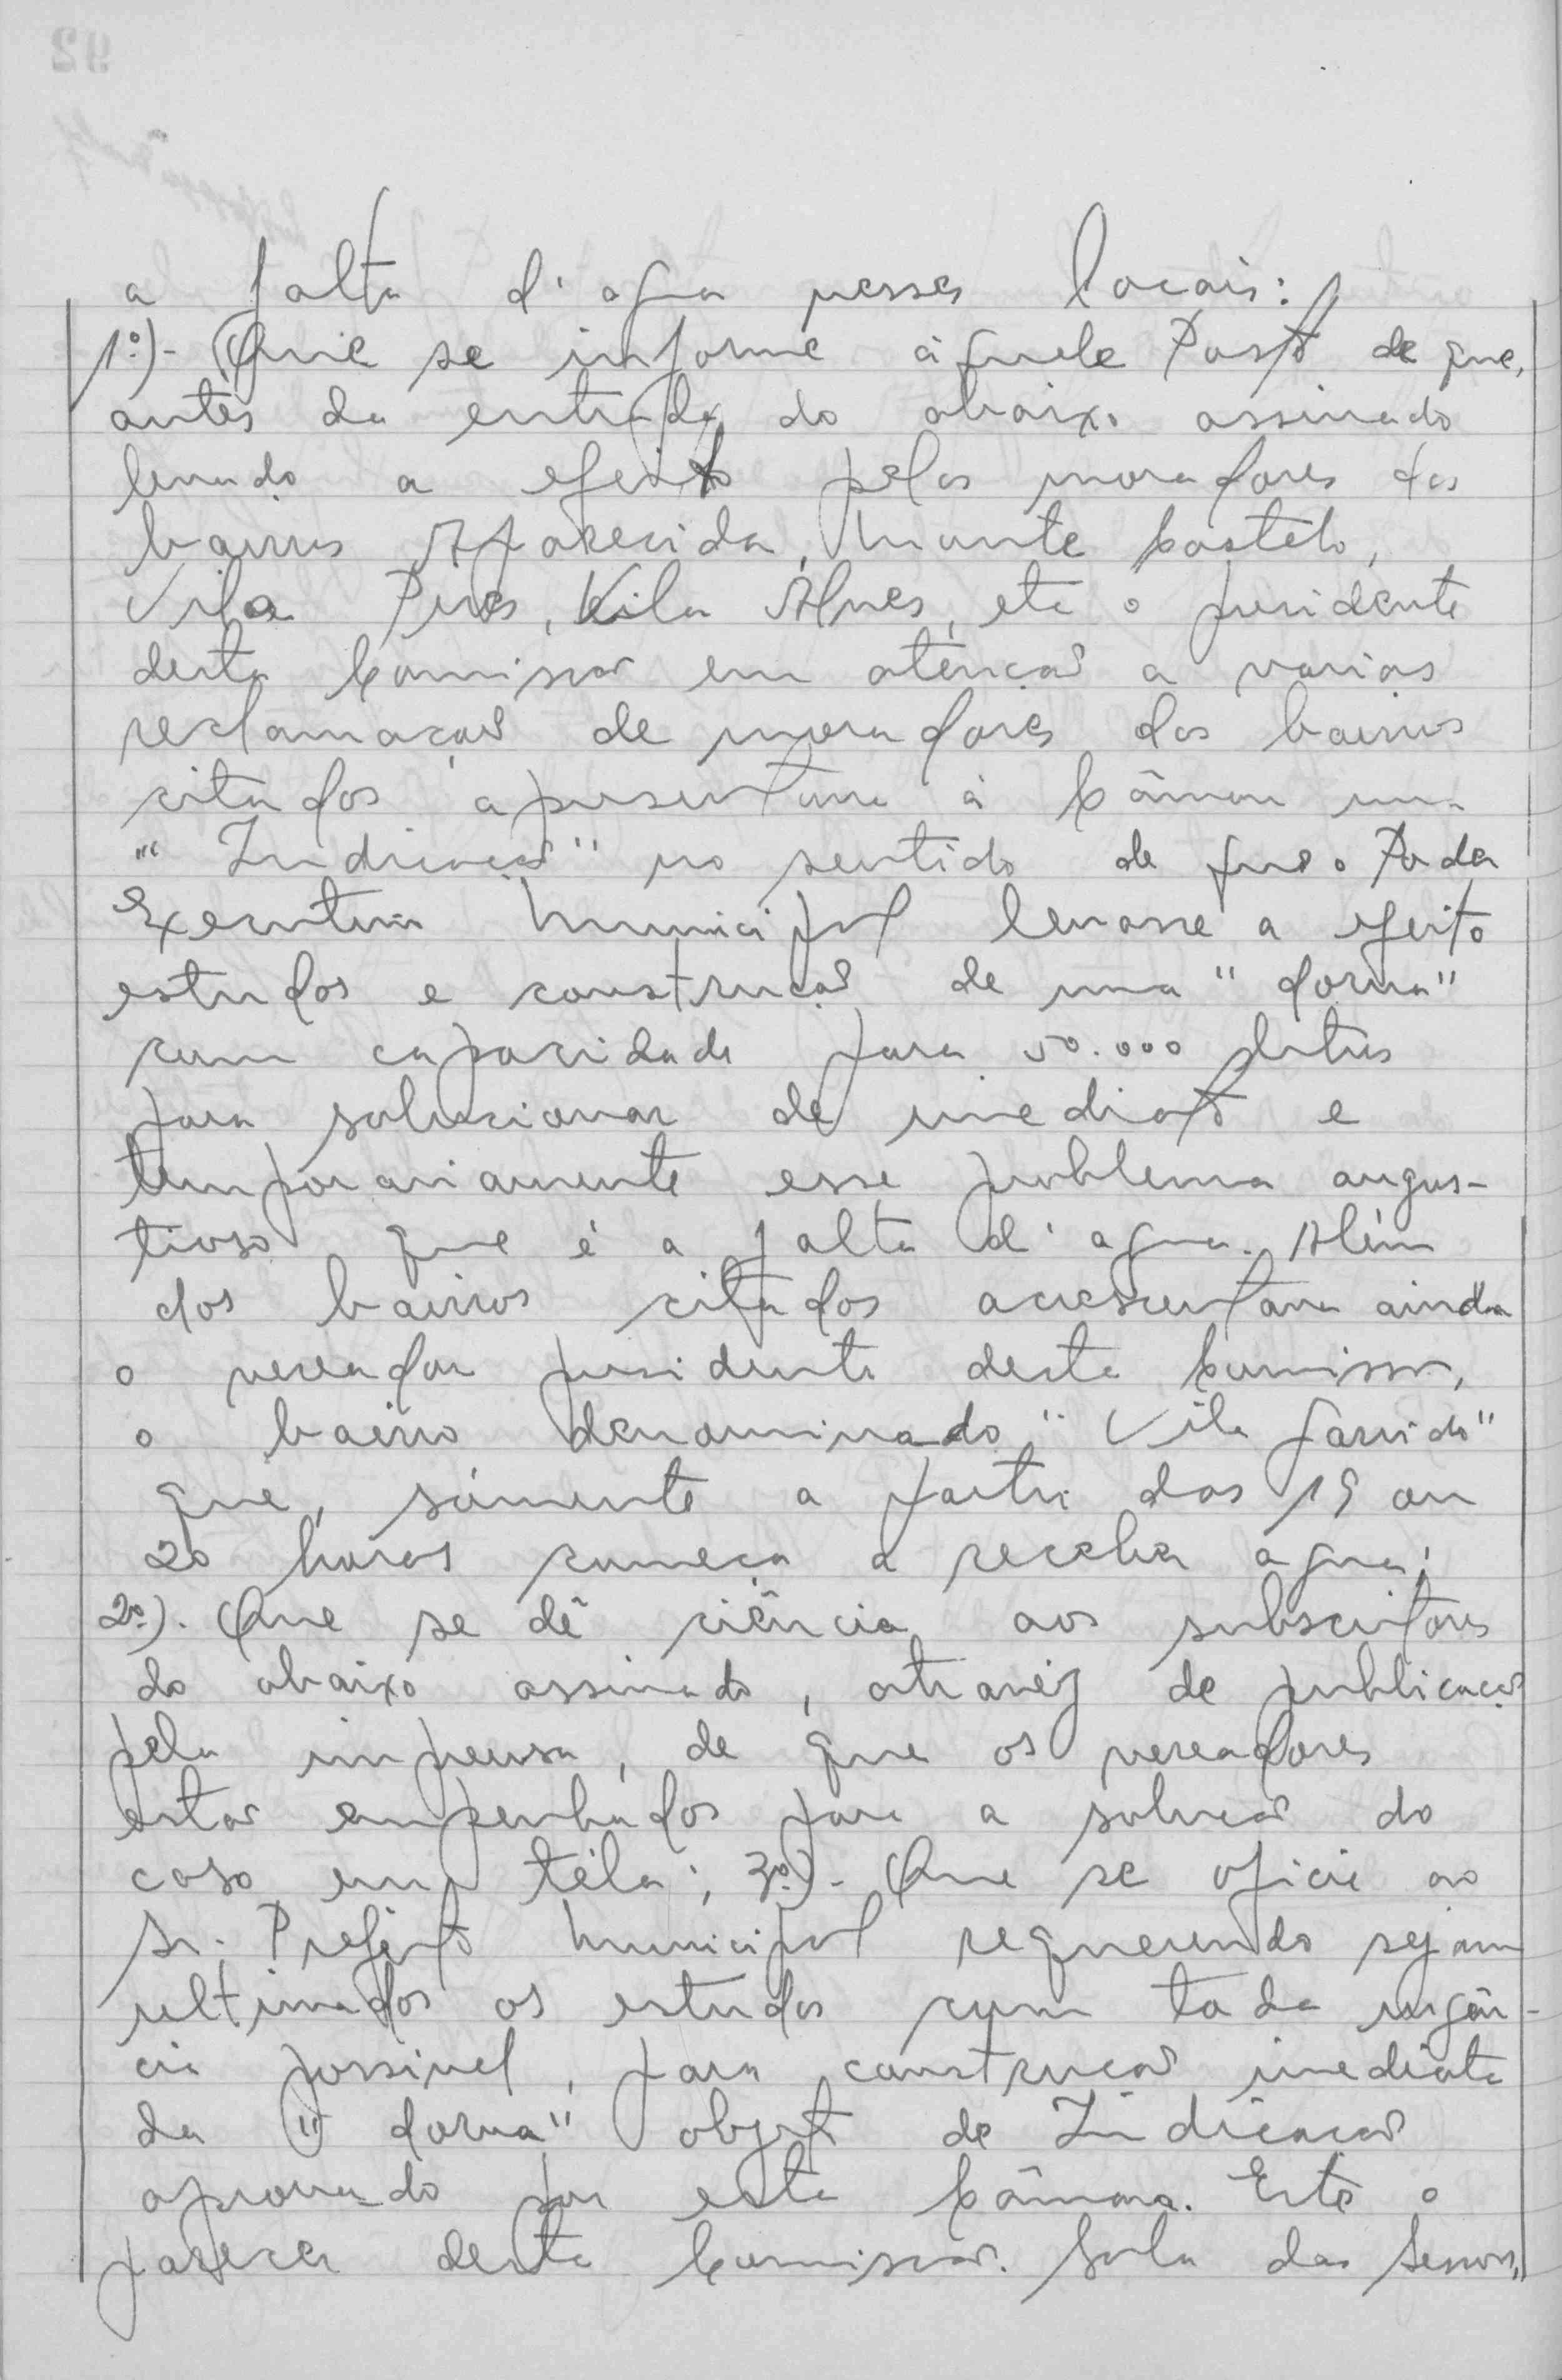 a falta d'agua nesses locais:
1º)- Que se informe áquele Posto de que,
antes da entrada do abaixo assinado
levado a efeito pelos moradores dos
bairros Aparecida, Monte Castelo,
Vila Pires, Vila Alves, etc o presidente
desta Comissão em atenção a varias
reclamação de moradores dos bairros
citados apresentara à Câmara uma
"Indicação" no sentido de que o Poder
Executivo Municipal levasse a efeito
estudos e construção de uma "dorna"
com capacidade para 50.000 litros
para solucionar de imediato e
temporariamente esse problema angus-
tioso que é a falta d'agua. Além
dos bairros citados acrescentara ainda
o vereador presidente desta Comissão,
o bairro denominado "Vila Garrido"
que, sómente a partir das 19 ou
20 horas começa a receber agua;
2º). Que se dê ciência aos subscritores
do abaixo assinado, atravéz de publicação
pela imprensa, de que os vereadores
estão empenhados para a solução do
caso em téla; 3º)- Que se oficie ao
Sr. Prefeito Municipal requerendo sejam
ultimados os estudos com toda urgên-
cia possivel, para construção imediata
da "dorna" objeto de Indicação
aprovado por esta Câmara. Este o
parecer desta Comissão. Sala das Sessões,